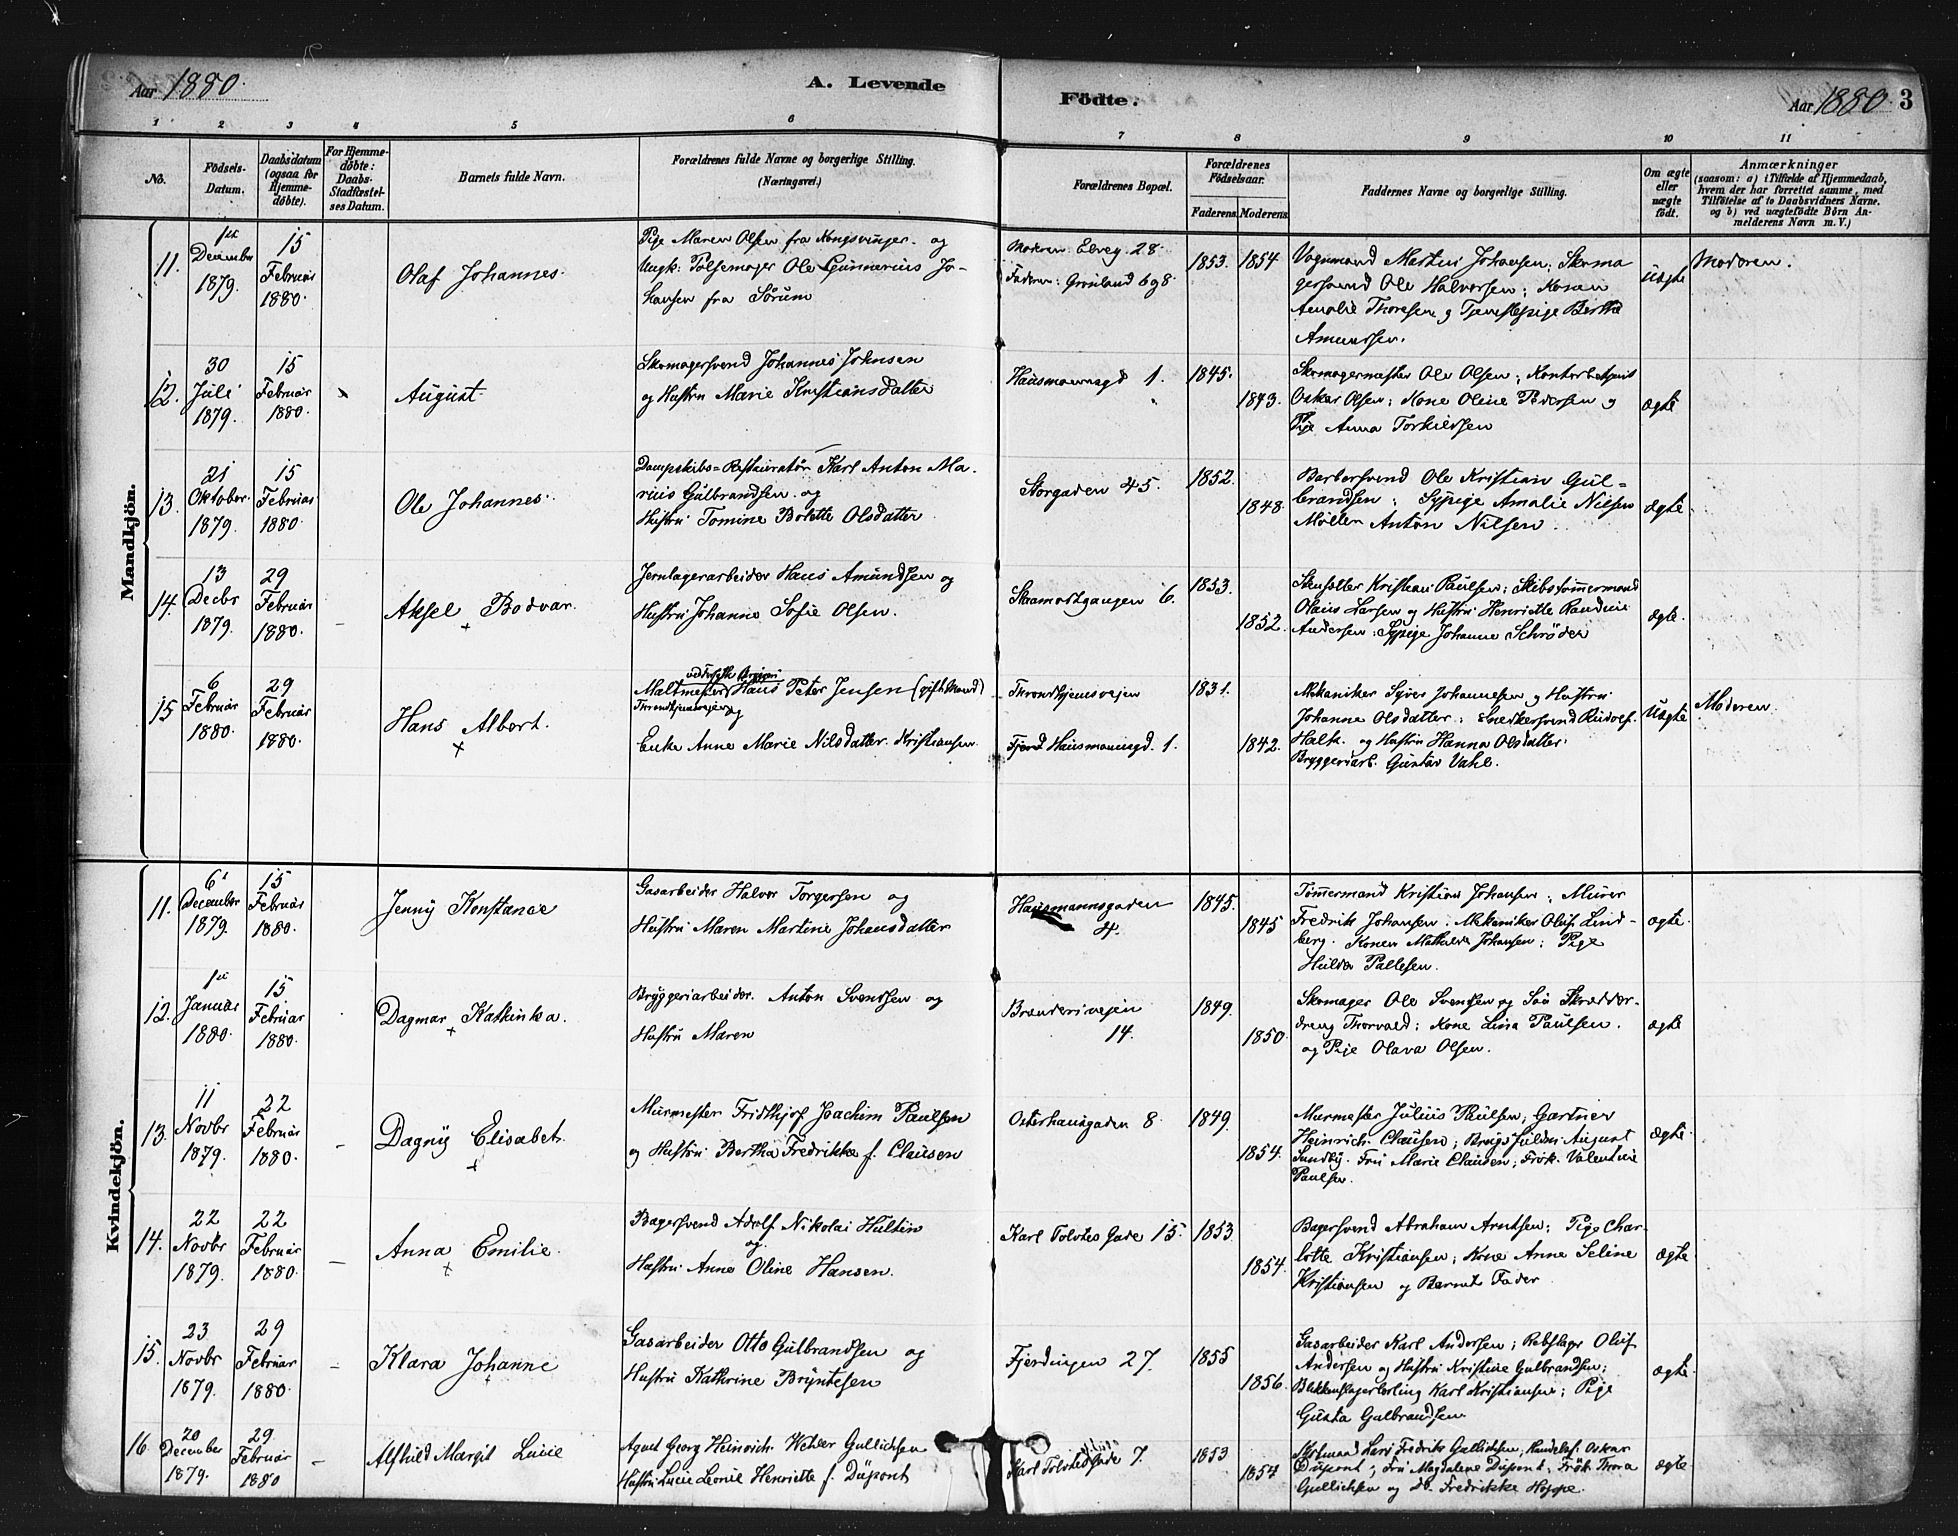 Aar 1880.
A. Levende
Födte.
Aar 1880. 3
1 2 3 4 5 6 7 8 9 10 11
No.
Födsels-
Datum.
Daabsdatum
(ogsaa for
Hjemme-
døbte).
For Hjemme-
døbte:
Daabs-
Stadfæstel-
ses Datum.
Barnets fulde Navn.
Forældrenes fulde Navne og borgerlige Stilling.
(Næringsvei.)
Forældrenes Bopæl.
Forældrenes
Fødselsaar.
Faderens. Moderens.
Faddernes Navne og borgerlige Stilling.
Om ægte
eller
uægte
født.
Anmærkninger
(saasom: a) i Tilfælde af Hjemmedaab,
hvem der har forrettet samme, med
Tilføielse af to Daabsvidners Navne.
og b) ved uægtefødte Børn An-
melderens Navn m. V.)
Mandkjön.
11.
1ste
December
1879.
15
Februar
1880.
Olaf Johannes.
Pige Maren Olsen fra Kongsvinger og
Ungk: Pølsemager Ole Gunnerius Jo-
hansen fra Sørum
Moderen: Elveg 28
Faderen: Grønland 6 og 8
1853. 1854
Vognmand Martin Johansen; Skoma
gersvend Ole Halvorsen; Konen
Amalie Thoresen og Tjenestepige Berthe
Amundsen.
Uægte
Moderen.
12.
30
Juli
1879.
15
Februar
1880.
August
Skomagersvend Johannes Johnsen
og Hustru Marie Kristiansdatter
Hausmannsgd 1.
1845.
1843.
Skomagermester Ole Olsen; Kontorbetjent
Oskar Olsen; Kone Oline Pedersen og
Pige Anna Torkildsen
ægte
13.
21
Oktober
1879.
15
Februar
1880.
Ole Johannes.
Dampskibs-Restauratør Karl Anton Ma-
rius Gulbrandsen og
Hustru Tomine Bolette Olsdatter
Storgaden 45.
1852.
1848.
Barbersvend Ole Kristian Gul-
brandsen; Sypige Amalie Nilsen
Møller Anton Nilsen
ægte
14.
13
Decbr
1879.
29
Februar
1880.
Aksel Bodvar.
Jernlagerarbeider Hans Amundsen og
Hustru Johanne Sofie Olsen.
6.
1853.
1852.
Kristian Paulsen; Skibstømmermand
Olaus Larsen og Hustru Henriette Randine
Andersen; Sypige Johanne Schrøder
ægte.
15
6
Februar
1880.
29
Februar
1880.
Hans Albert.
Maltmester Hans Peter Jensen (gift Mand)
og
Enke Anne Marie Nilsdatter Kristiansen
Throndhjemsvejen
Hausmannsgd. 1.
1831.
1842.
Mekaniker Syver Johannesen og Hustru
Johanne Olsdatter; Snedkersvend Rudolf
Halk. og Hustru Hanna Olsdatter;
Bryggeriarb. Gustav Vahl.
Uægte
Moderen
Kvindekjön.
11.
6
December
1879.
15
Februar
1880.
Jenny Konstance
Gasarbeider Halvor Torgersen og
Hustru Maren Martine Johansdatter
Hausmannsgaden
4.
1845.
1845
Tømmermand Kristian Johansen; Murer
Fredrik Johansen; Mekaniker Oluf Lind-
berg. Konen Mathilde Johansen; Pige
Hulda Pallesen.
ægte.
12.
1ste
Januar
1880.
15
Februar
1880.
Dagmar Kathinka.
Bryggeriarbeider. Anton Svendsen og
Hustru Maren
Brænderivejen
14.
1849.
1850.
Skomager Ole Svendsen og Søn Skrædder-
dreng Thorvald; Kone Lina Paulsen.
og Pige Olava Olsen.
ægte
13.
11
Novbr
1879.
22
Februar
1880.
Dagny Elisabet.
Murmester Fridthjof Joachim Paulsen
og Hustru Bertha Fredrikke f. Clausen
Osterhausgaden 8.
1849.
1854.
Murmester Julius Paulsen; Gartner
Heinrich Clausen; August
Sundby. Fru Marie Clausen; Frøk. Valentine
Paulsen.
ægte.
14.
22
Novbr
1879.
22
Februar
1880.
Anna Emilie.
Bagersvend Adolf Nikolai Hultin
og
Hustru Anne Oline Hansen.
Karl Tolvtes Gade 15.
1853.
1854.
Bagersvend Abraham Arntsen; Pige Char-
lotte Kristiansen; Kone Anne Seline
Kristiansen og Barnets Fader
ægte
15.
23
Novbr
1879.
29
Februar
1880.
Klara Johanne
Gasarbeider Otto Gulbrandsen og
Hustru Kathrine Bryntesen
Fjerdingen 27.
1855
1856.
Gasarbeider Karl Andersen; Rebslager Oluf
Andersen og Hustru Kristine Gulbrandsen;
Blikkenslagerlærling Karl Kristiansen; Pige
Gusta Gulbrandsen
ægte.
16.
20
December
1879.
29.
Februar
1880
Alfhild Margit Lucie
Agent Georg Heinrich Wehler Gullichsen
Hustru Lucie Leonie Henriette f. Düpont
Karl Tolvtes Gade 7.
1853
1854
Lars Fredrik Gullichsen; Handelsf: Oskar
Düpont; Fru Magdalene Düpont; Frøk. Thora
Gullichsen og do. Fredrikke Hoppe.
ægte.